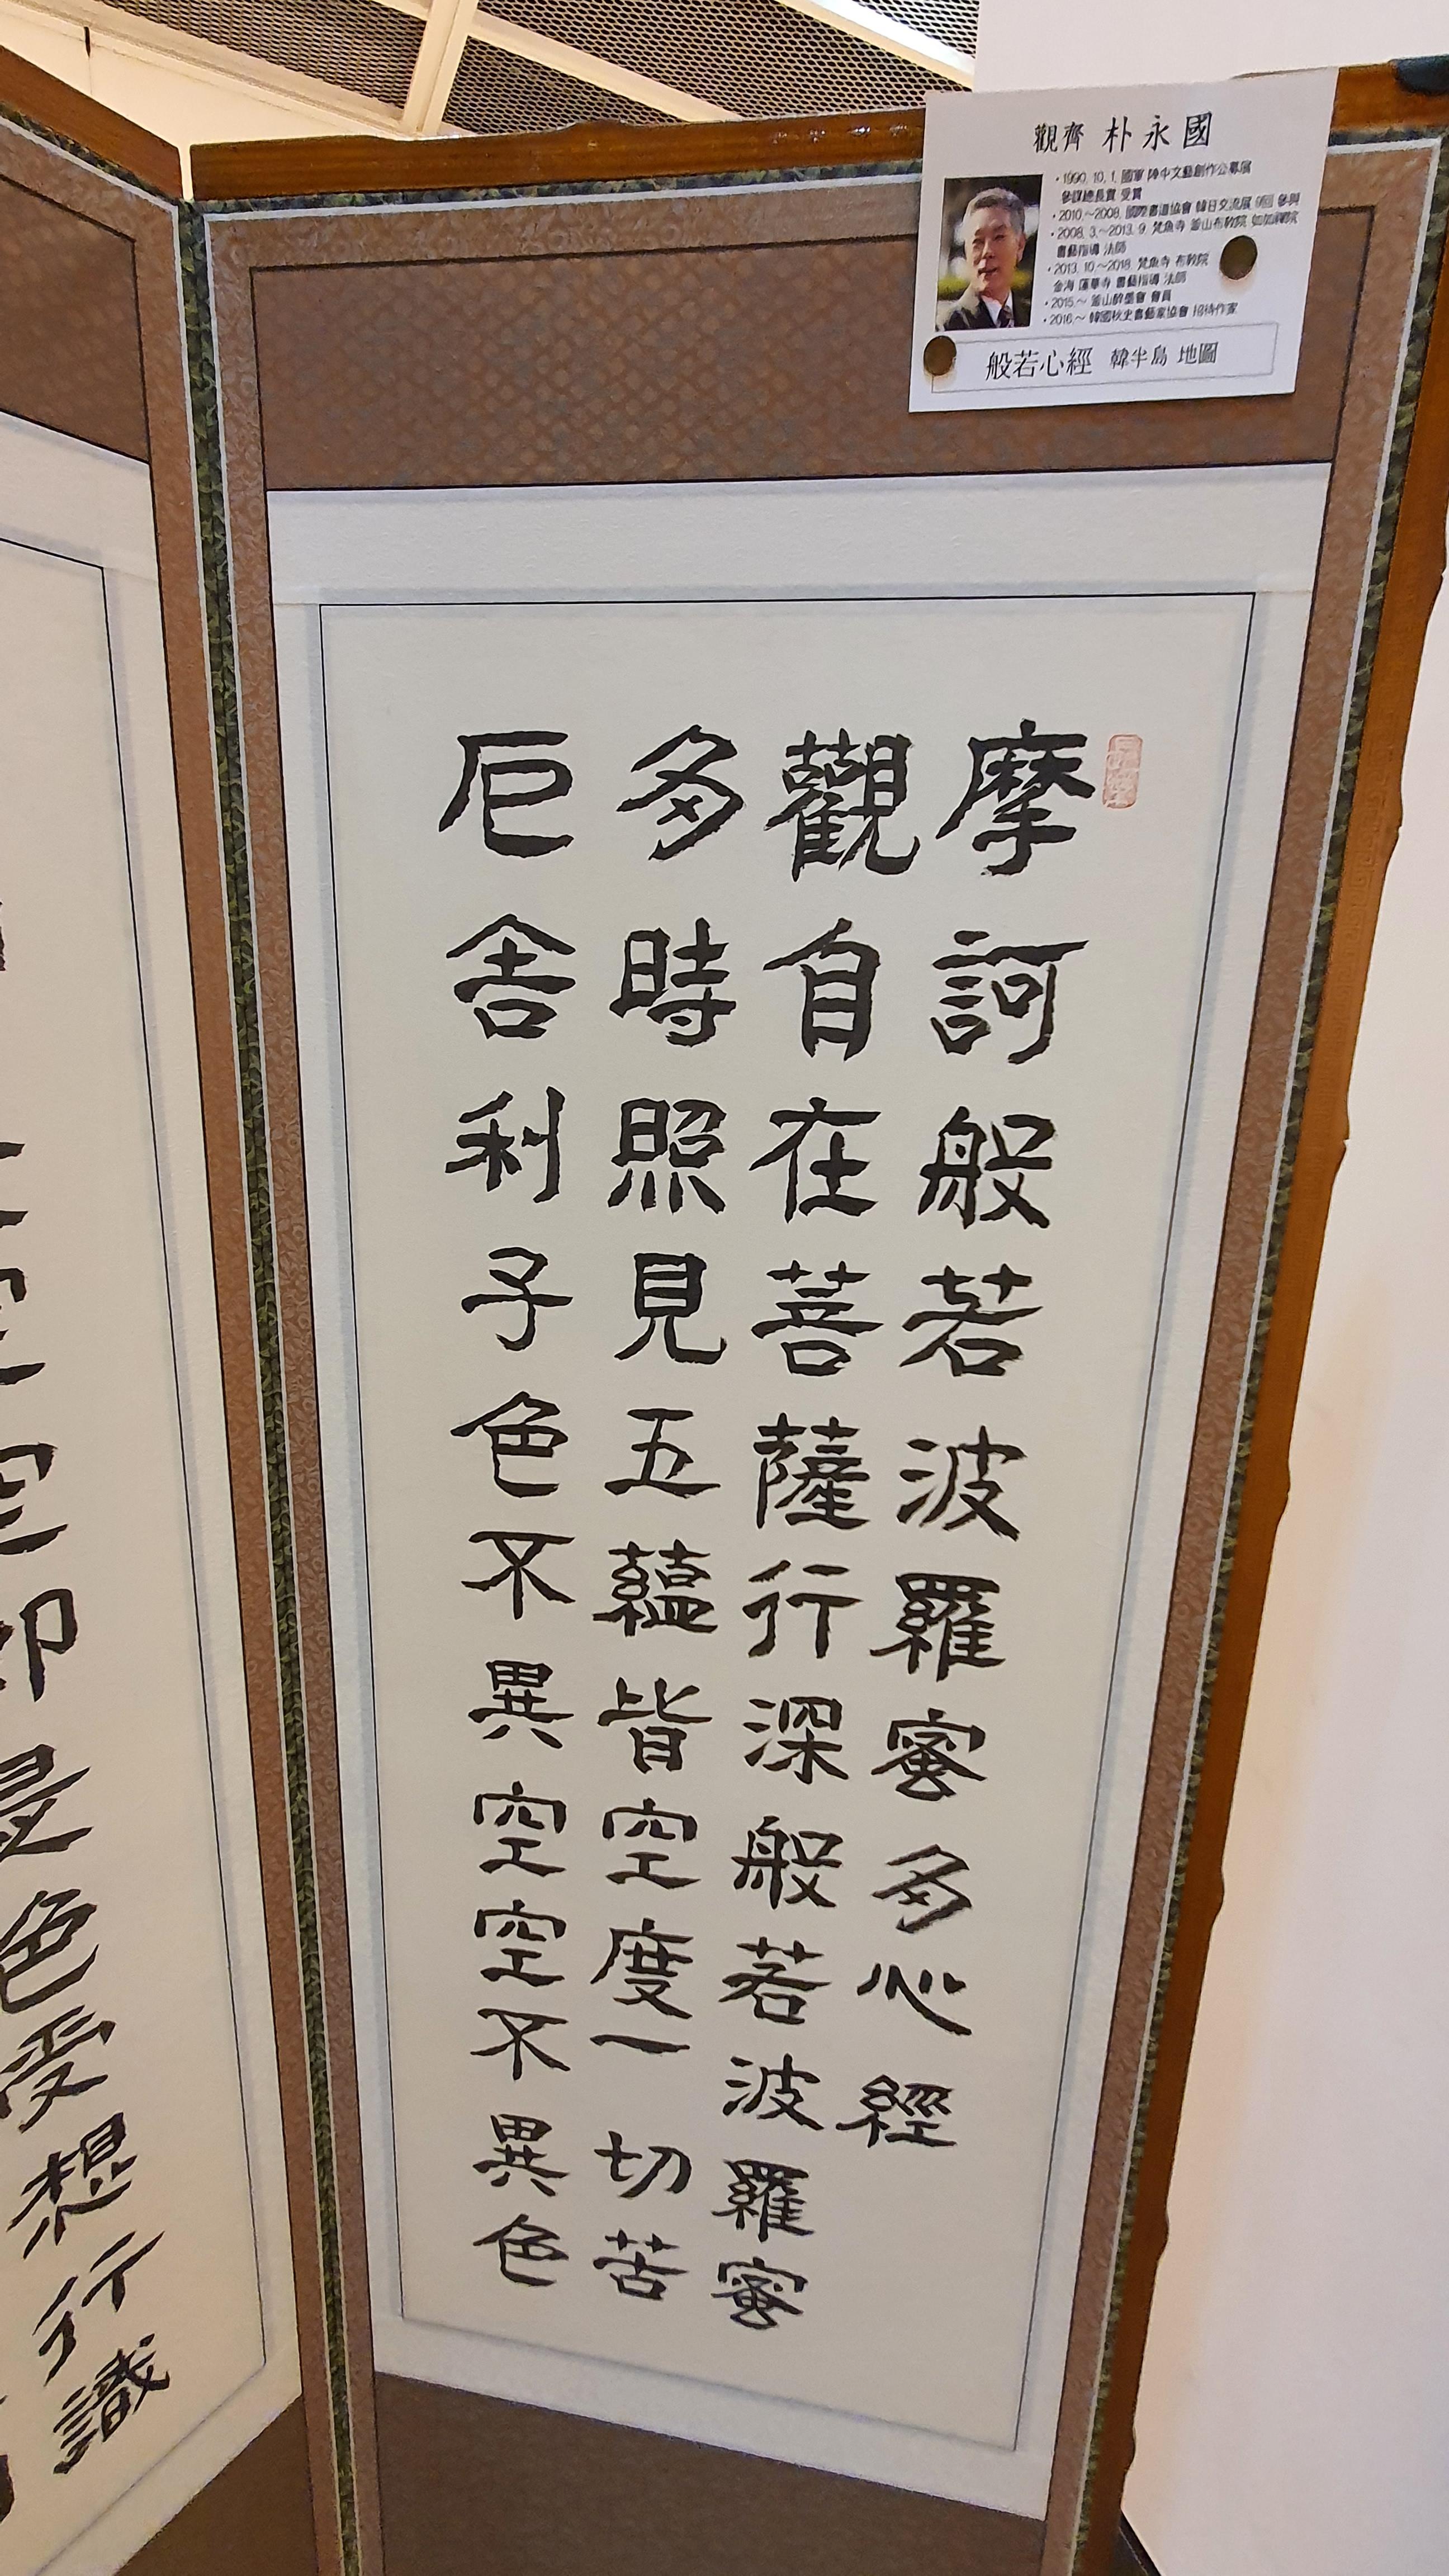 觀齊 朴永國
・1990. 10. 1. 國軍 陣中文藝創作公募展
參謀總長賞 受賞
・2010.~2008. 國際書道協會 韓日交流展 9回 參與
・2008. 3.~2013. 9. 梵魚寺 釜山布敎院 如如禪院
書藝指導 法師
・2013. 10.~2018. 梵魚寺 布敎院
金海 蓮華寺 書藝指導 法師
・2015.~ 釜山 會員
・2016.~ 韓國秋史書藝家協會 招待作家
般若心經 韓半島 地圖
摩訶般若波羅蜜多心經
觀自在菩薩行深般若波羅蜜
多時照見五蘊皆空度一切苦
厄舍利子色不異空空不異色
是色受想行識